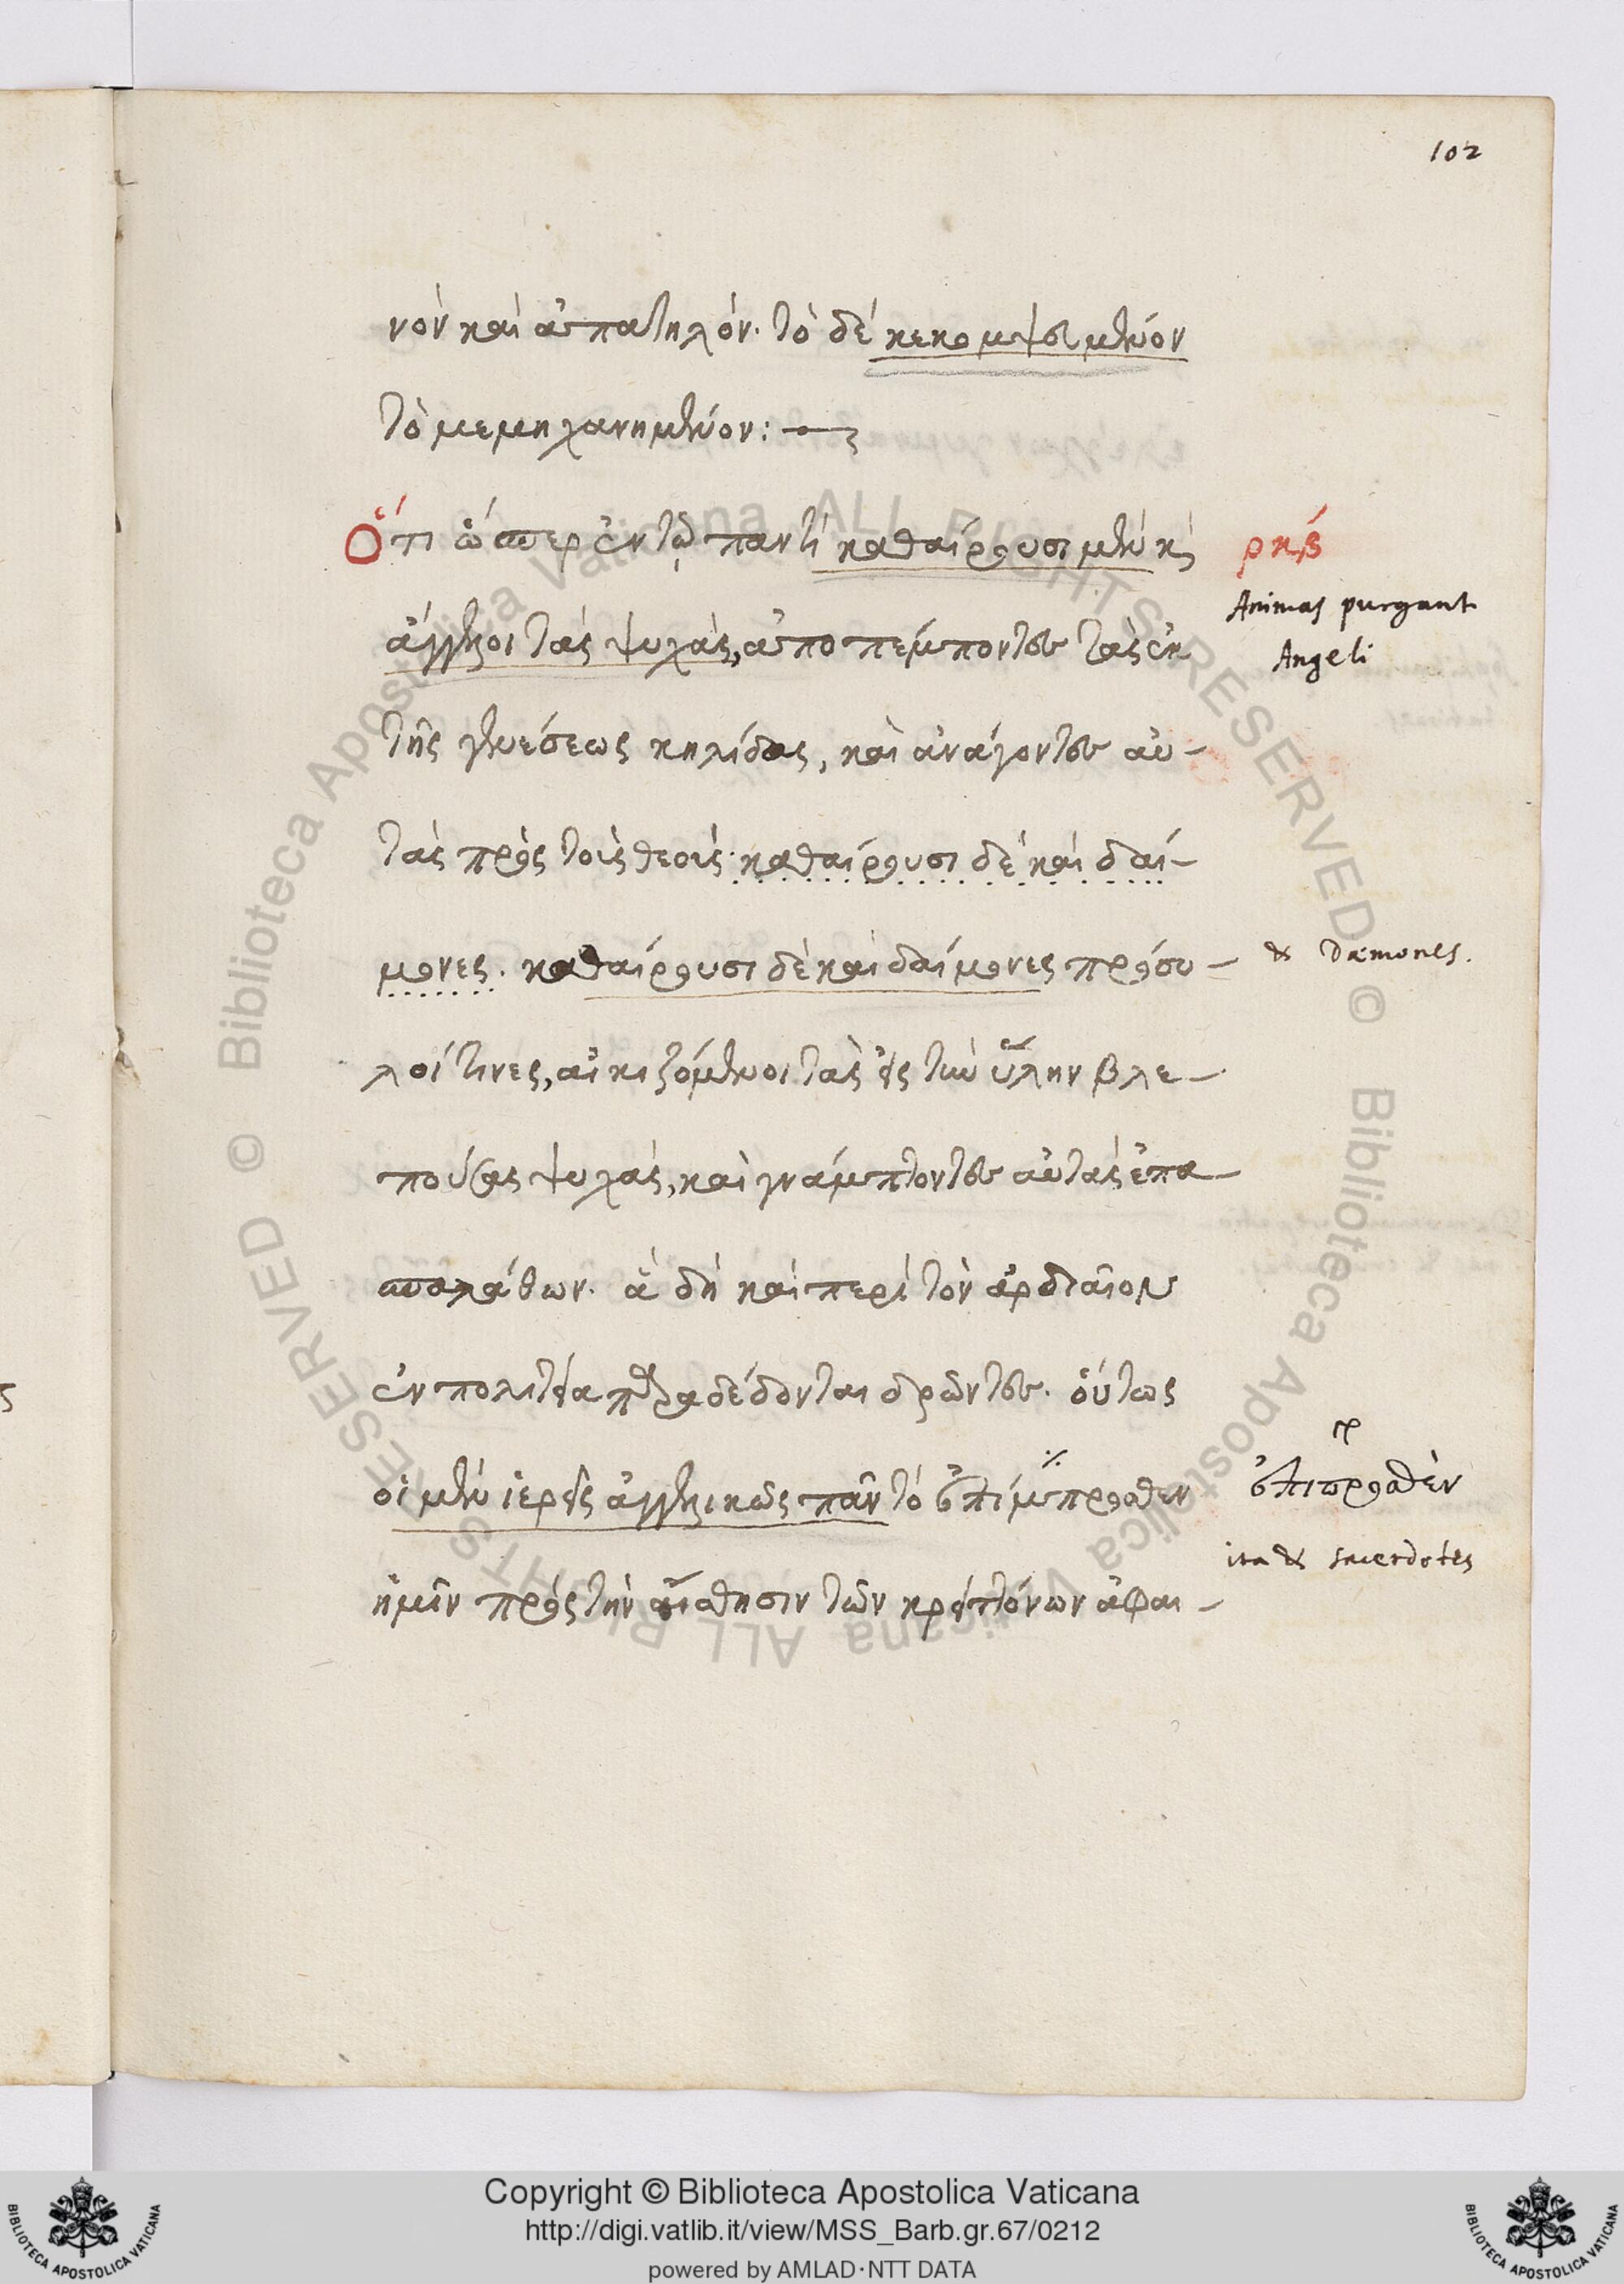 102
νον καὶ ἀπατηλόν. τὸ δὲ κεκομψευμένον
τὸ μεμηχανημένον:
Ὅτι ὥσπερ ἐν τῷ παντὶ καθαίρουσι μὲν κ
ρκβ
Animas purgant
ἄγγελοι τὰς ψυχὰς, ἀποπέμποντες τὰς ἐκ
Angeli
τῆς γενέσεως κηλίδας, καὶ ἀνάγοντες αὐ-
τὰς πρὸς τοὺς θεούς. καθαίρουσι δὲ καὶ δαί-
μονες. καθαίρουσι δὲ καὶ δαίμονες πρόσυ-
& Dæmones.
λοί τινες, αἰκιζόμενοι τὰς εἰς τὴν ὕλην βλε-
πούσας ψυχάς, καὶ γνάμπτοντες αὐτὰς ἐπ' ἀ-
σπαλάθων. ἃ δὴ καὶ περὶ τὸν ἀρδιαῖον
ἐν πολιτείᾳ παραδέδονται δρῶντες. οὕτως
οἱ μὲν ἱερεῖς ἀγγελικῶς πᾶν τὸ ἐπίμπροσθεν
ἐπιπροσθὲν
ita & sacerdotes
ἡμῖν πρὸς τὴν αἴσθησιν τῶν κρειττόνων ἀφαι-
Copyright © Biblioteca Apostolica Vaticana
http://digi.vatlib.it/view/MSS_Barb.gr.67/0212
powered by AMLAD·NTT DATA
BIBLIOTECA APOSTOLICA VATICANA
BIBLIOTECA APOSTOLICA VATICANA
© Biblioteca Apostolica Vaticana ALL RIGHTS RESERVED © Biblioteca Apostolica Vaticana ALL RIGHTS RESERVED